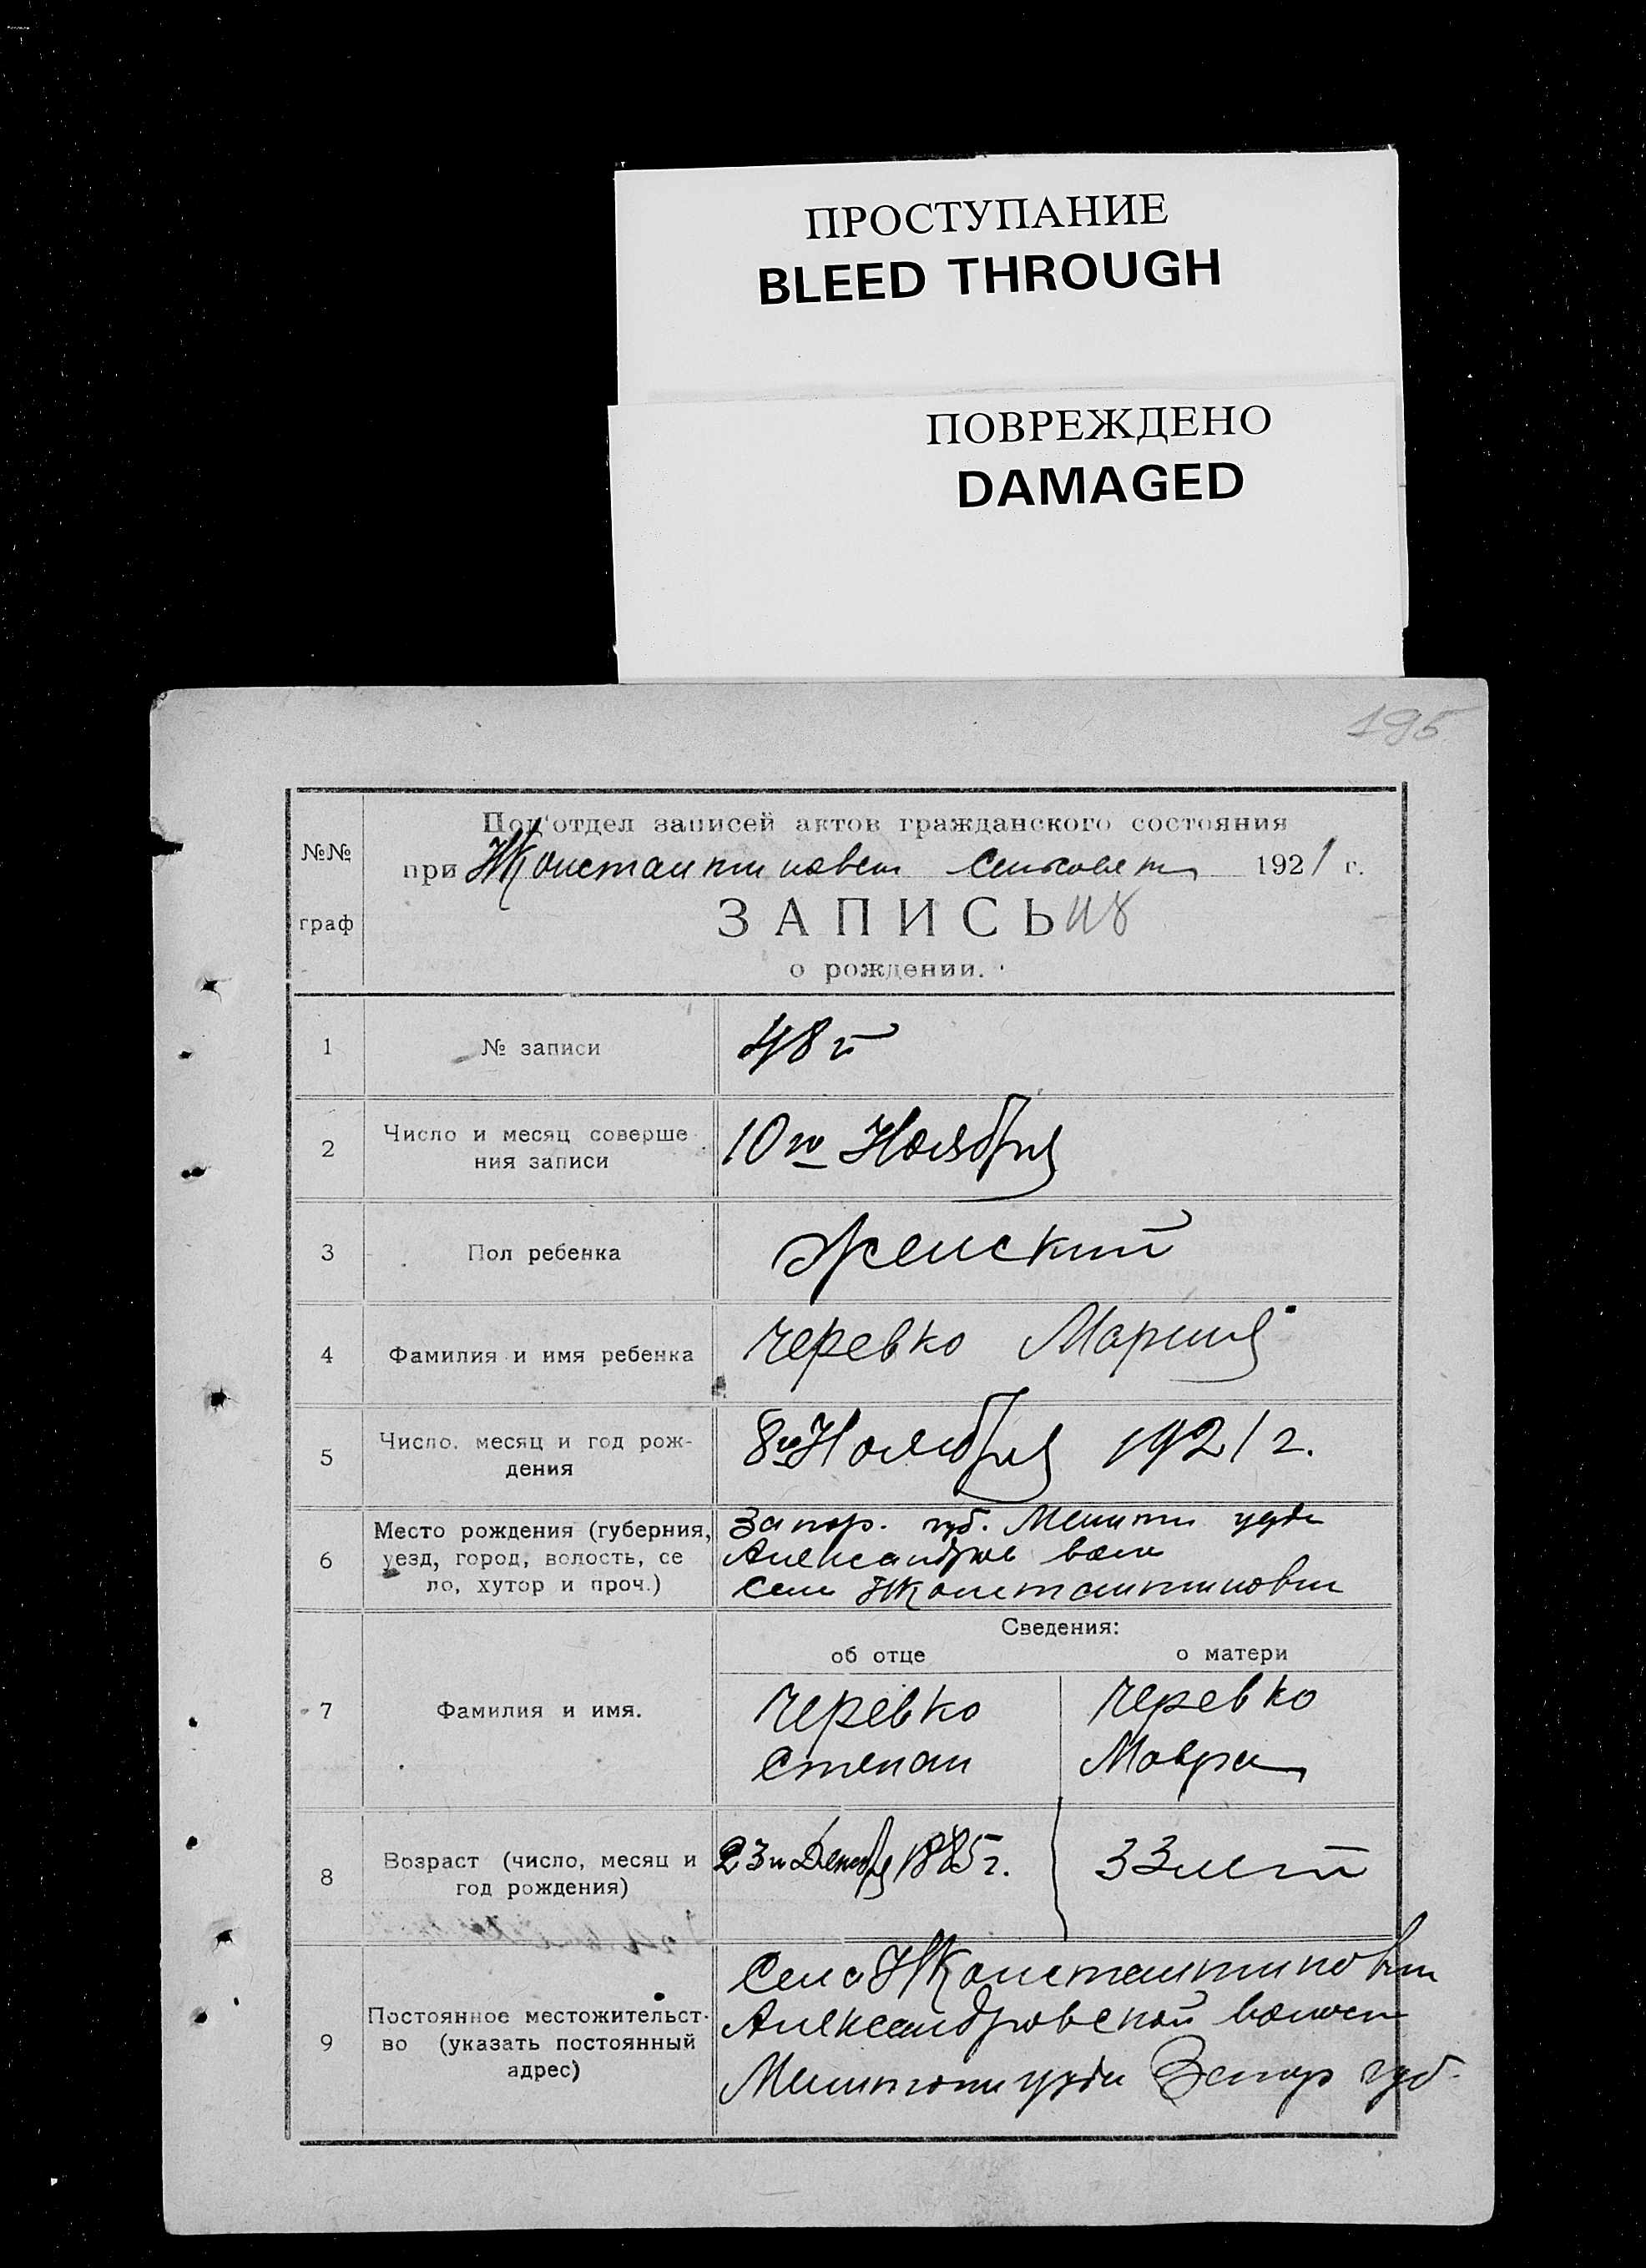 ПРОСТУПАНИЕ
BLEED THROUGH
ПОВРЕЖДЕНО
DAMAGED
195
№№
граф
Под'отдел записей актов гражданского состояния
при НКонстантиновск сельсовет 1921 г.
ЗАПИСЬ
о рождении.
1 № записи 48й
2 Число и месяц соверше-
ния записи 10го Ноября
3 Пол ребенка женский
4 Фамилия и имя ребенка Черевко Мария
5 Число, месяц и год рож-
дения 8го Ноября 1921 г.
6 Место рождения (губерния,
уезд, город, волость, се
ло, хутор и проч.)
Запор. губ. Мелит уезда
Александров воло
Село НКонстантиновка
Сведения:
об отце о матери
7 Фамилия и имя.
Черевко Черевко
Степан Мавра
8 Возраст (число, месяц и
год рождения)
23го Декабря 1885 г. 33 лет
9 Постоянное местожительст-
во (указать постоянный
адрес)
Село НКонстантиновка
Александровской волости
уезда Запор губ.